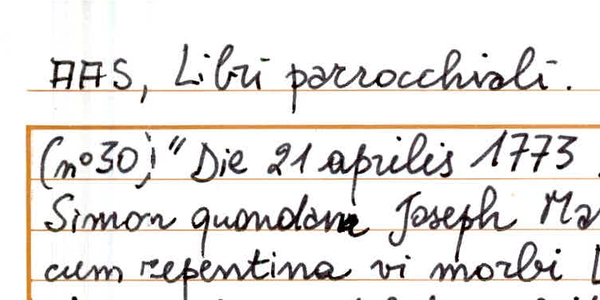 AAS, Libri parrocchiali.
(n° 30) "Die 21 aprilis 1773
Simon quondam Joseph Ma
cum repentina vi morbi